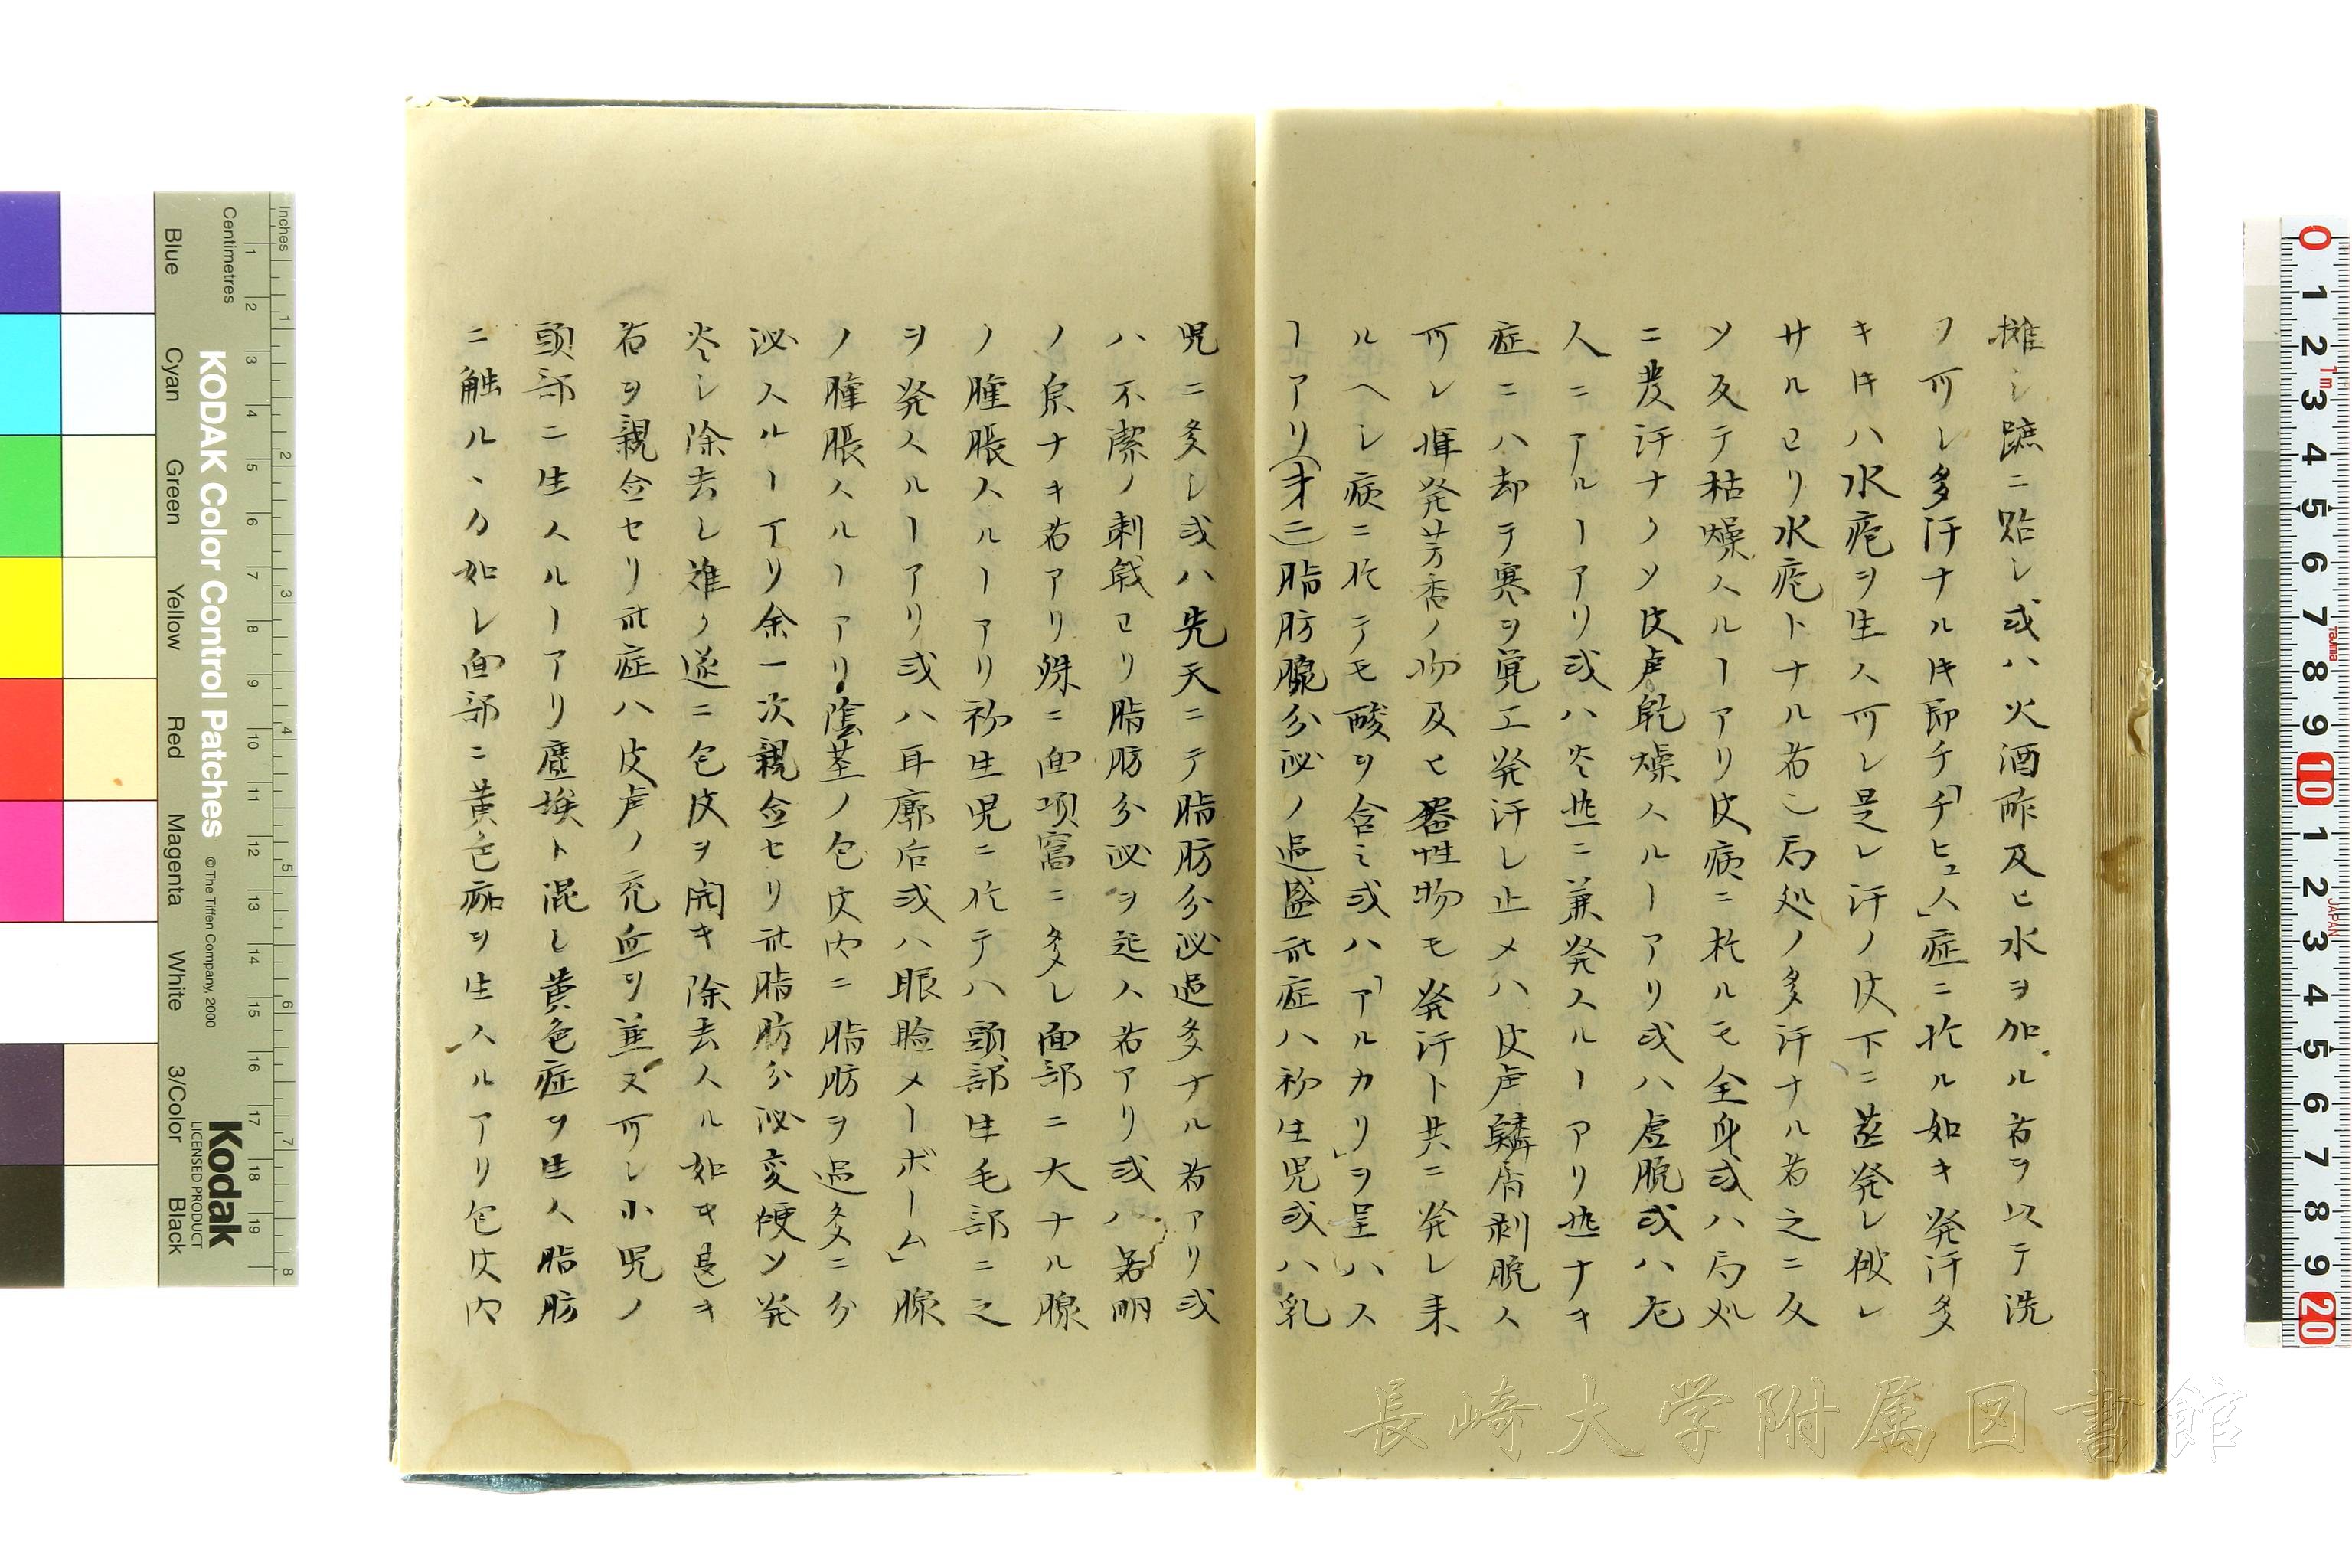 攤シ蹠ニ貼シ或ハ火酒酢及ヒ水ヲ加ル者ヲ以テ洗
フ可シ多汗ナル𪜈即チ「チヒュス」症ニ於ル如キ発汗多
キ𪜈ハ水疱ヲ生ス可シ是レ汗ノ皮下ニ蒸発シ破レ
サルヨリ水疱トナル者也局処ノ多汗ナル者之ニ反
ソ反テ枯燥スルヿアリ皮病ニ於ルモ全身或ハ局処
ニ発汗ナクソ皮膚乾燥スルヿアリ或ハ虚脱或ハ老
人ニアルヿアリ或ハ炎𤍠ニ兼発スルヿアリ𤍠ナキ
症ニハ却テ寒ヲ覚エ発汗シ止メハ皮膚鱗屑剥脱ス
可シ揮発芳香ノ物及ヒ器性物モ発汗ト共ニ発シ来
ルヘシ病ニ於テモ酸ヲ含ミ或ハ「アルカリ」ヲ呈ハス
ヿアリ(才二)脂肪腺分泌ノ過盛此症ハ初生児或ハ乳
児ニ多シ或ハ先天ニテ脂肪分泌過多ナル者アリ或
ハ不潔ノ刺戟ヨリ脂肪分泌ヲ起ス者アリ或ハ畧明
ノ原ナキ者アリ殊ニ面項窩ニ多シ面部ニ大ナル腺
ノ腫脹スルヿアリ初生児ニ於テハ頭部生毛部ニ之
ヲ発スルヿアリ或ハ耳廓后或ハ眼瞼メーボーム」腺
ノ腫脹スルヿアリ陰茎ノ包皮内ニ脂肪ヲ過多ニ分
泌スルヿアリ余一次親金セリ此脂肪分泌変硬ソ発
炎シ除去シ難ク遂ニ包皮ヲ開キ除去スル如キ甚キ
者ヲ親金セリ此症ハ皮膚ノ充血ヲ兼又可シ小児ノ
頭部ニ生スルヿアリ塵埃ト混シ黄色症ヲ生ス脂肪
ニ触ル、カ如シ面部ニ黄色痂ヲ生スルアリ包皮内
KODAK Color Control Patches
©The Tiffen Company, 2000
Kodak
LICENSED PRODUCT
Inches
Centimetres
Blue Cyan Green Yellow Red Magenta White 3/Color Black
長崎大学附属図書館